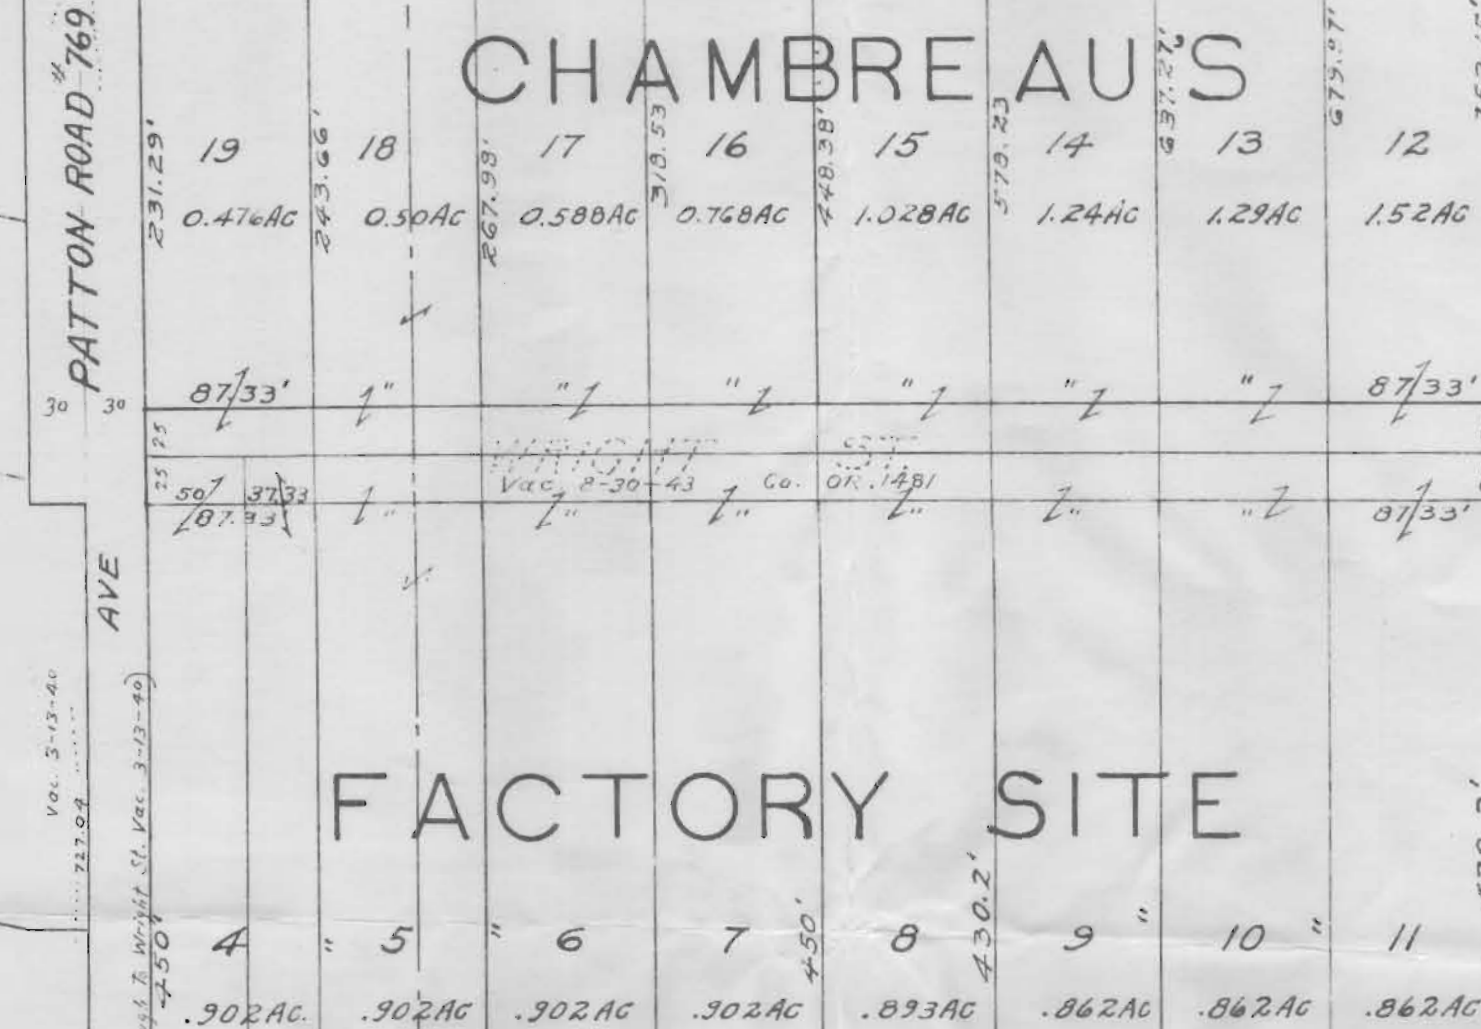 PATTON ROAD #769
CHAMBREAU'S
19 18 17 16 15 14 13 12
231.29' 243.66' 267.98' 318.53 448.38' 578.23 637.27' 679.97'
0.476AC 0.50AC 0.588AC 0.768AC 1.028AC 1.24AC 1.29AC 1.52AC
87/33' " " " " " " 87/33'
30 30
25
WRIGHT ST
25
Vac. 8-30-43 Co. OR. 1481
50 37.33
87.33' " " " " " " 87/33'
AVE
Vac. 3-13-40
727.04
To Wright St. Vac. 3-13-40)
FACTORY SITE
450' " " 450' 430.2' " "
4 5 6 7 8 9 10 11
.902AC. .902AC .902AC .902AC .893AC .862AC .862AC .862AC